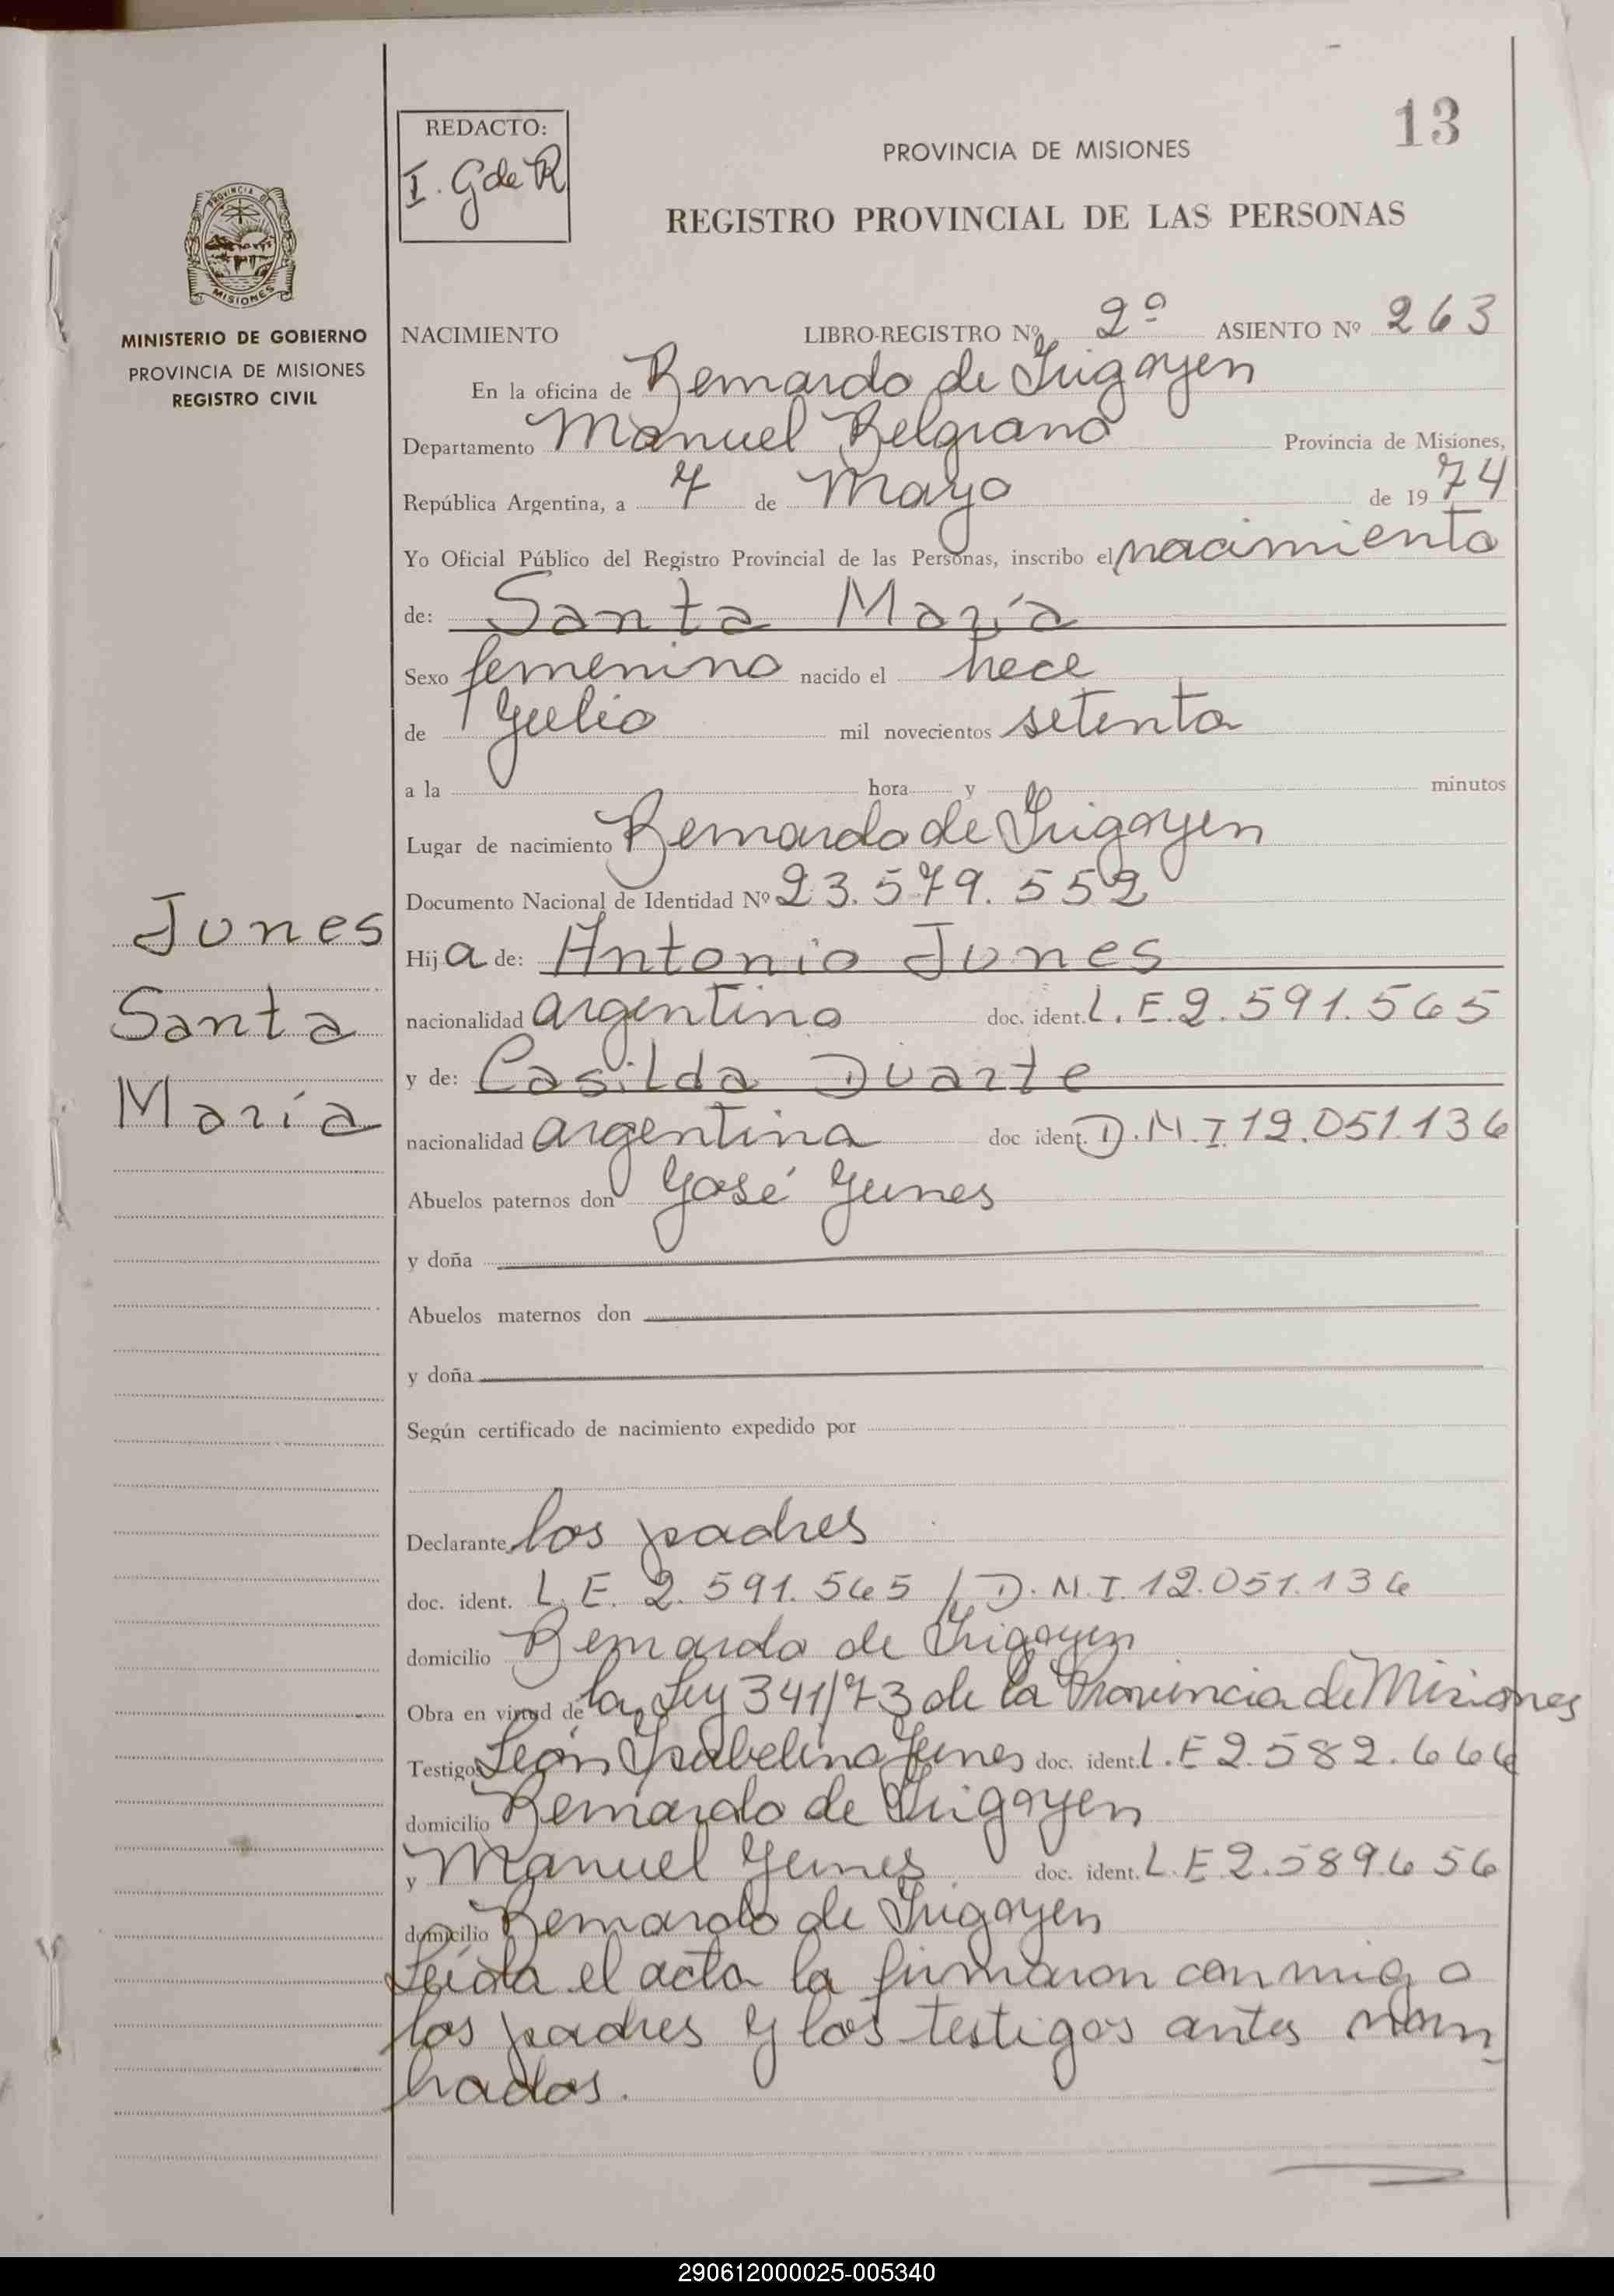 13
REDACTO:
I. G de R
PROVINCIA DE MISIONES
REGISTRO PROVINCIAL DE LAS PERSONAS
PROVINCIA DE
MISIONES
MINISTERIO DE GOBIERNO
PROVINCIA DE MISIONES
REGISTRO CIVIL
NACIMIENTO LIBRO-REGISTRO Nº 2º ASIENTO Nº 263
En la oficina de Bernardo de Irigoyen
Departamento Manuel Belgrano Provincia de Misiones,
República Argentina, a 7 de Mayo de 1974
Yo Oficial Público del Registro Provincial de las Personas, inscribo el nacimiento
de: Santa María
Sexo femenino nacido el trece
de Julio mil novecientos setenta
a la hora y minutos
Lugar de nacimiento Bernardo de Irigoyen
Documento Nacional de Identidad Nº 23.579.552
Hija de: Antonio Junes
nacionalidad argentino doc. ident. L.E.2.591.565
y de: Casilda Duarte
nacionalidad argentina doc ident. D.N.I.12.051.136
Abuelos paternos don José Junes
y doña
Abuelos maternos don
y doña
Según certificado de nacimiento expedido por
Declarante los padres
doc. ident. L.E. 2.591.565 / D.N.I.12.051.136
domicilio Bernardo de Irigoyen
Obra en virtud de la Ley 341/73 de la Provincia de Misiones
Testigos León Ysabelino Junes doc. ident. L.E 2.582.666
domicilio Bernardo de Irigoyen
y Manuel Junes doc. ident. L.E 2.589.656
domicilio Bernardo de Irigoyen
Leída el acta la firmaron conmigo
los padres y los testigos antes nom-
brados.
Junes
Santa
María
290612000025-005340